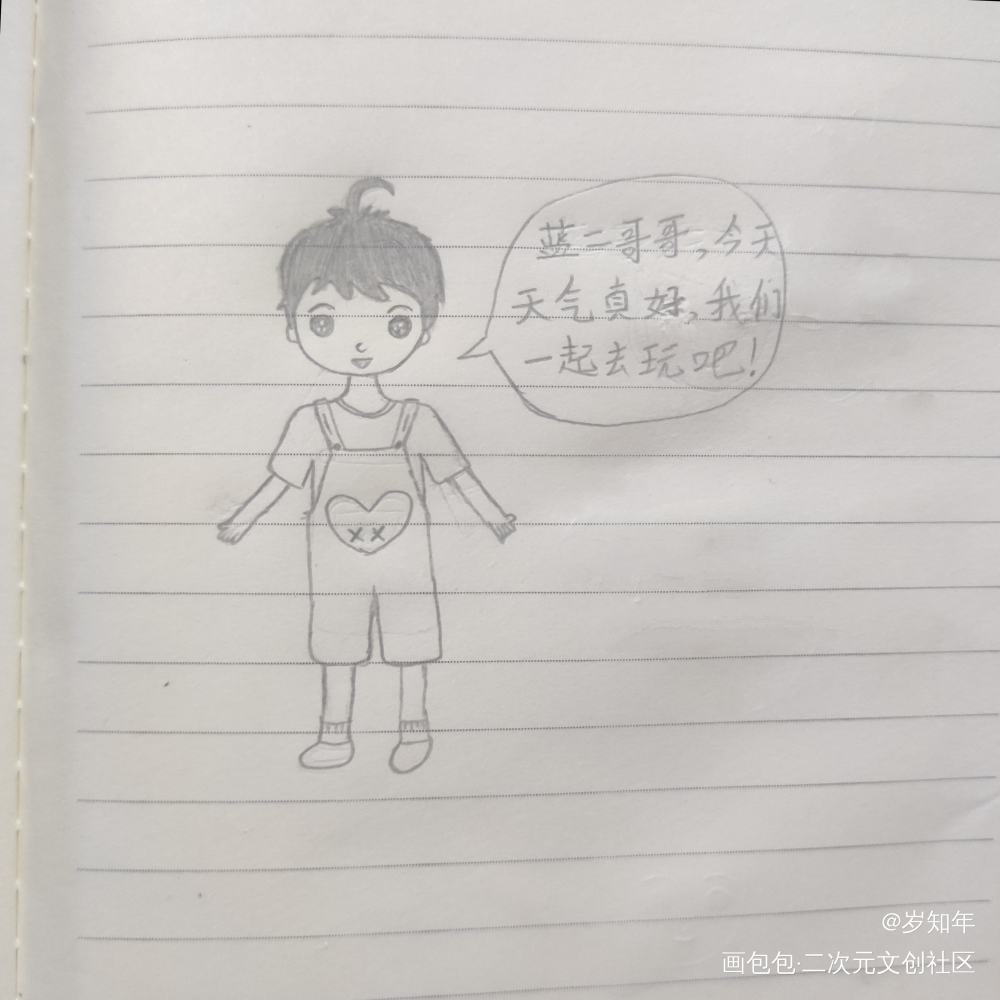 蓝二哥哥,今天
天气真好,我们
一起去玩吧!
@岁知年
画包包·二次元文创社区